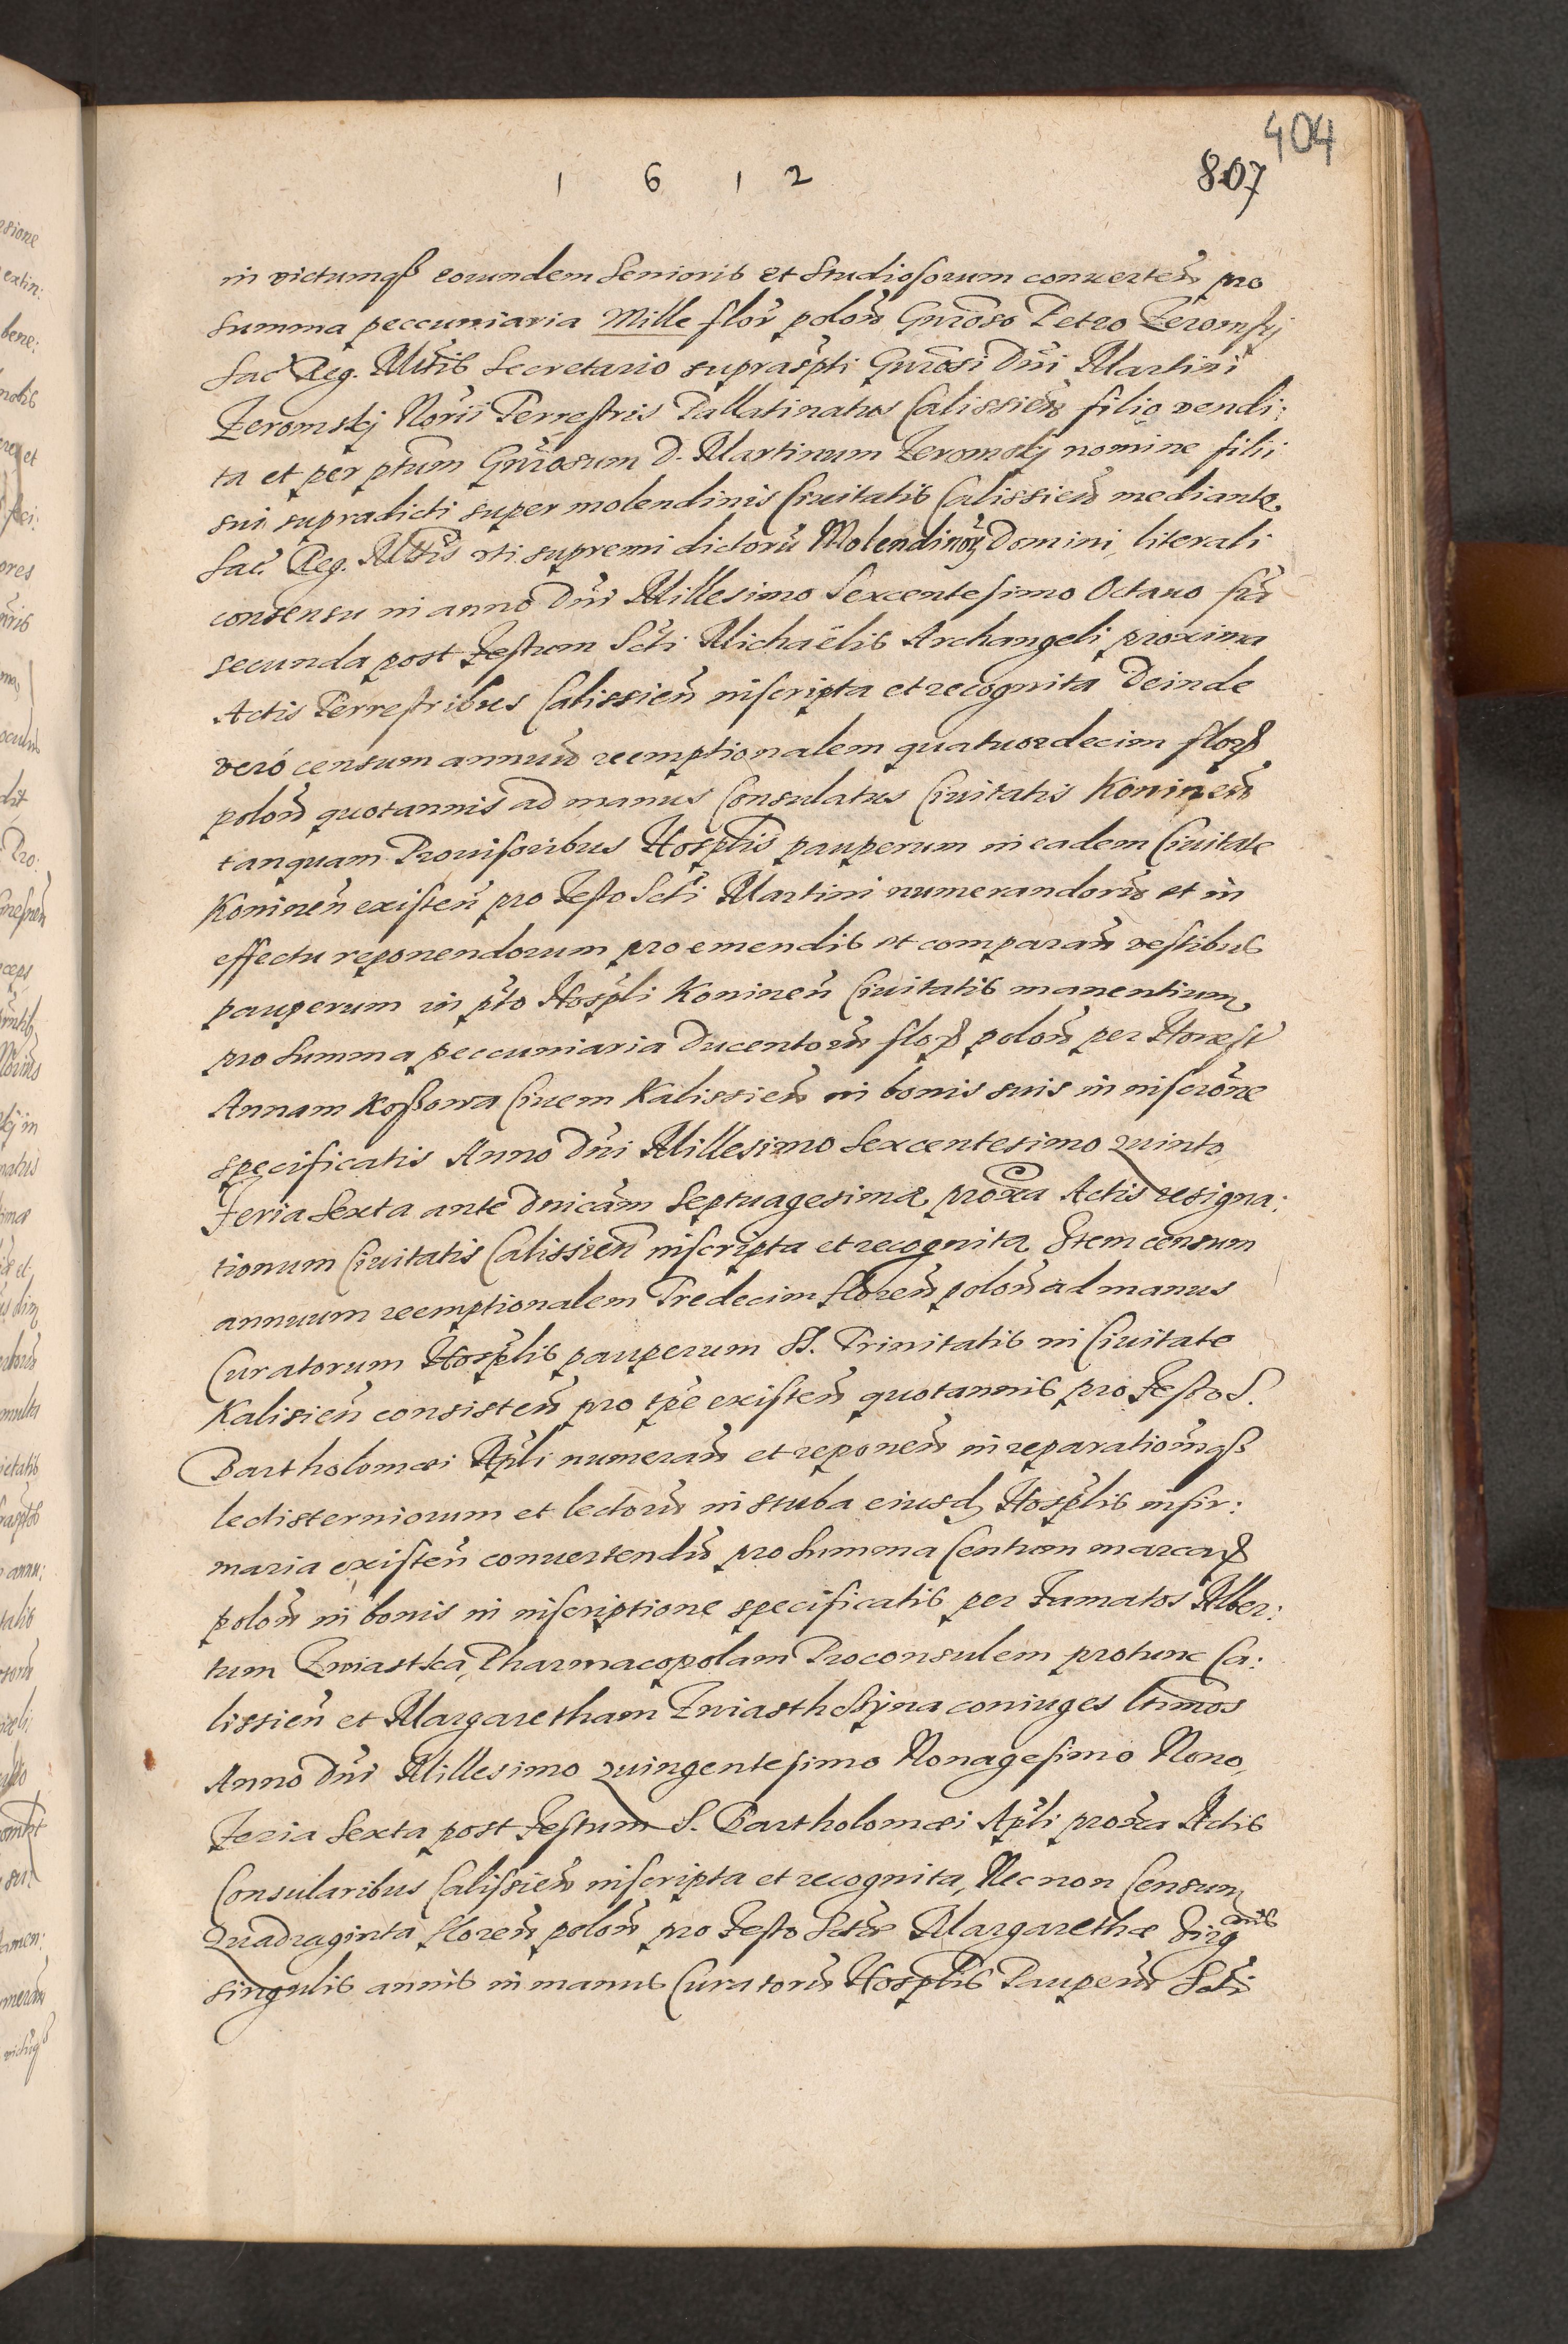 404
1 6 1 2
807
in victumqß eorundem Senioris et Studiosorum conuerteñ pro
Summa peccuniaria Mille flor̃ poloñ Gnr̃oso Petro Zeromsky
Sac̃ Reg. Mtis Secretario suprasp̃ti Gnr̃osi Dni Martini
Zeromskj Nor̃ii Terrestris Pallatinatus Calissieñ filio vendi:
ta et per p̃tum Gnr̃osum D. Martinum Zeromskj nomine filii
sui supradicti super molendinis Ciuitatis Calissieñ mediante
Sac̃. Reg. Mttis vti supremi dictorũ Molendinorz Domini, literali
consensu in anno Dni Millesimo Sexcentesimo Octauo fr̃a
secunda post Festum Scti Michaëlis Archangeli proxima
Actis Terrestribus Calissieñ inscripta et recognita Deinde
veró censum annuũ reemptionalem quatuordecim flor
poloñ quotannis ad manus Consulatus Ciuitatis Konineñ
tanquam Prouisoribus Hosp̃tlis pauperum in eadem Ciuitate
Konineñ existeñ pro Festo Scti Martini numerandorũ et in
effectu reponendorum pro emendis et comparañ vestibus
pauperum in p̃to Hosp̃li Konineñ Ciuitatis manentium
pro Summa peccuniaria Ducentorũ flor poloñ per Honest̃
Annam Koßowa Ciuem Kalissieñ in bonis suis in inscrõne
specificatis Anno Dni Millesimo Sexcentesimo Quinto
Feria Sexta ante Dnicãm Septuagesimæ proxã Actis resigna:
tionum Ciuitatis Calissieñ inscripta et recognita Item censum
annuum reemptionalem Tredecim floreñ poloñ ad manus
Curatorum Hosp̃lis pauperum St. Trinitatis in Ciuitate
Kalisieñ consisteñ pro tp̃e existeñ quotannis pro Festo S.
Bartholomæi Ap̃li numerañ et reponeñ in reparationẽqß
lectisterniorum et lectorũ in stuba eiusd Hosp̃lis infir:
maria existeñ conuertendũ pro Summa Centum marcar
poloñ in bonis in inscriptione specificatis per Famatos Alber:
tum Zwiastka, Pharmacopolam Proconsulem protunc Ca:
lissieñ et Margaretham Zwiasthchÿna coniuges ltimos
Anno Dni Millesimo Quingentesimo Nonagesimo Nono,
Feria Sexta post Festum S. Bartholomæi Ap̃li proxa Actis
Consularibus Calissieñ inscripta et recognita, Nec non Censum
Quadraginta floreñ poloñ pro Festo Sctæ Margarethæ Virginis
singulis annis in manus Curatorũ Hosp̃tlis Pauperũ Scti